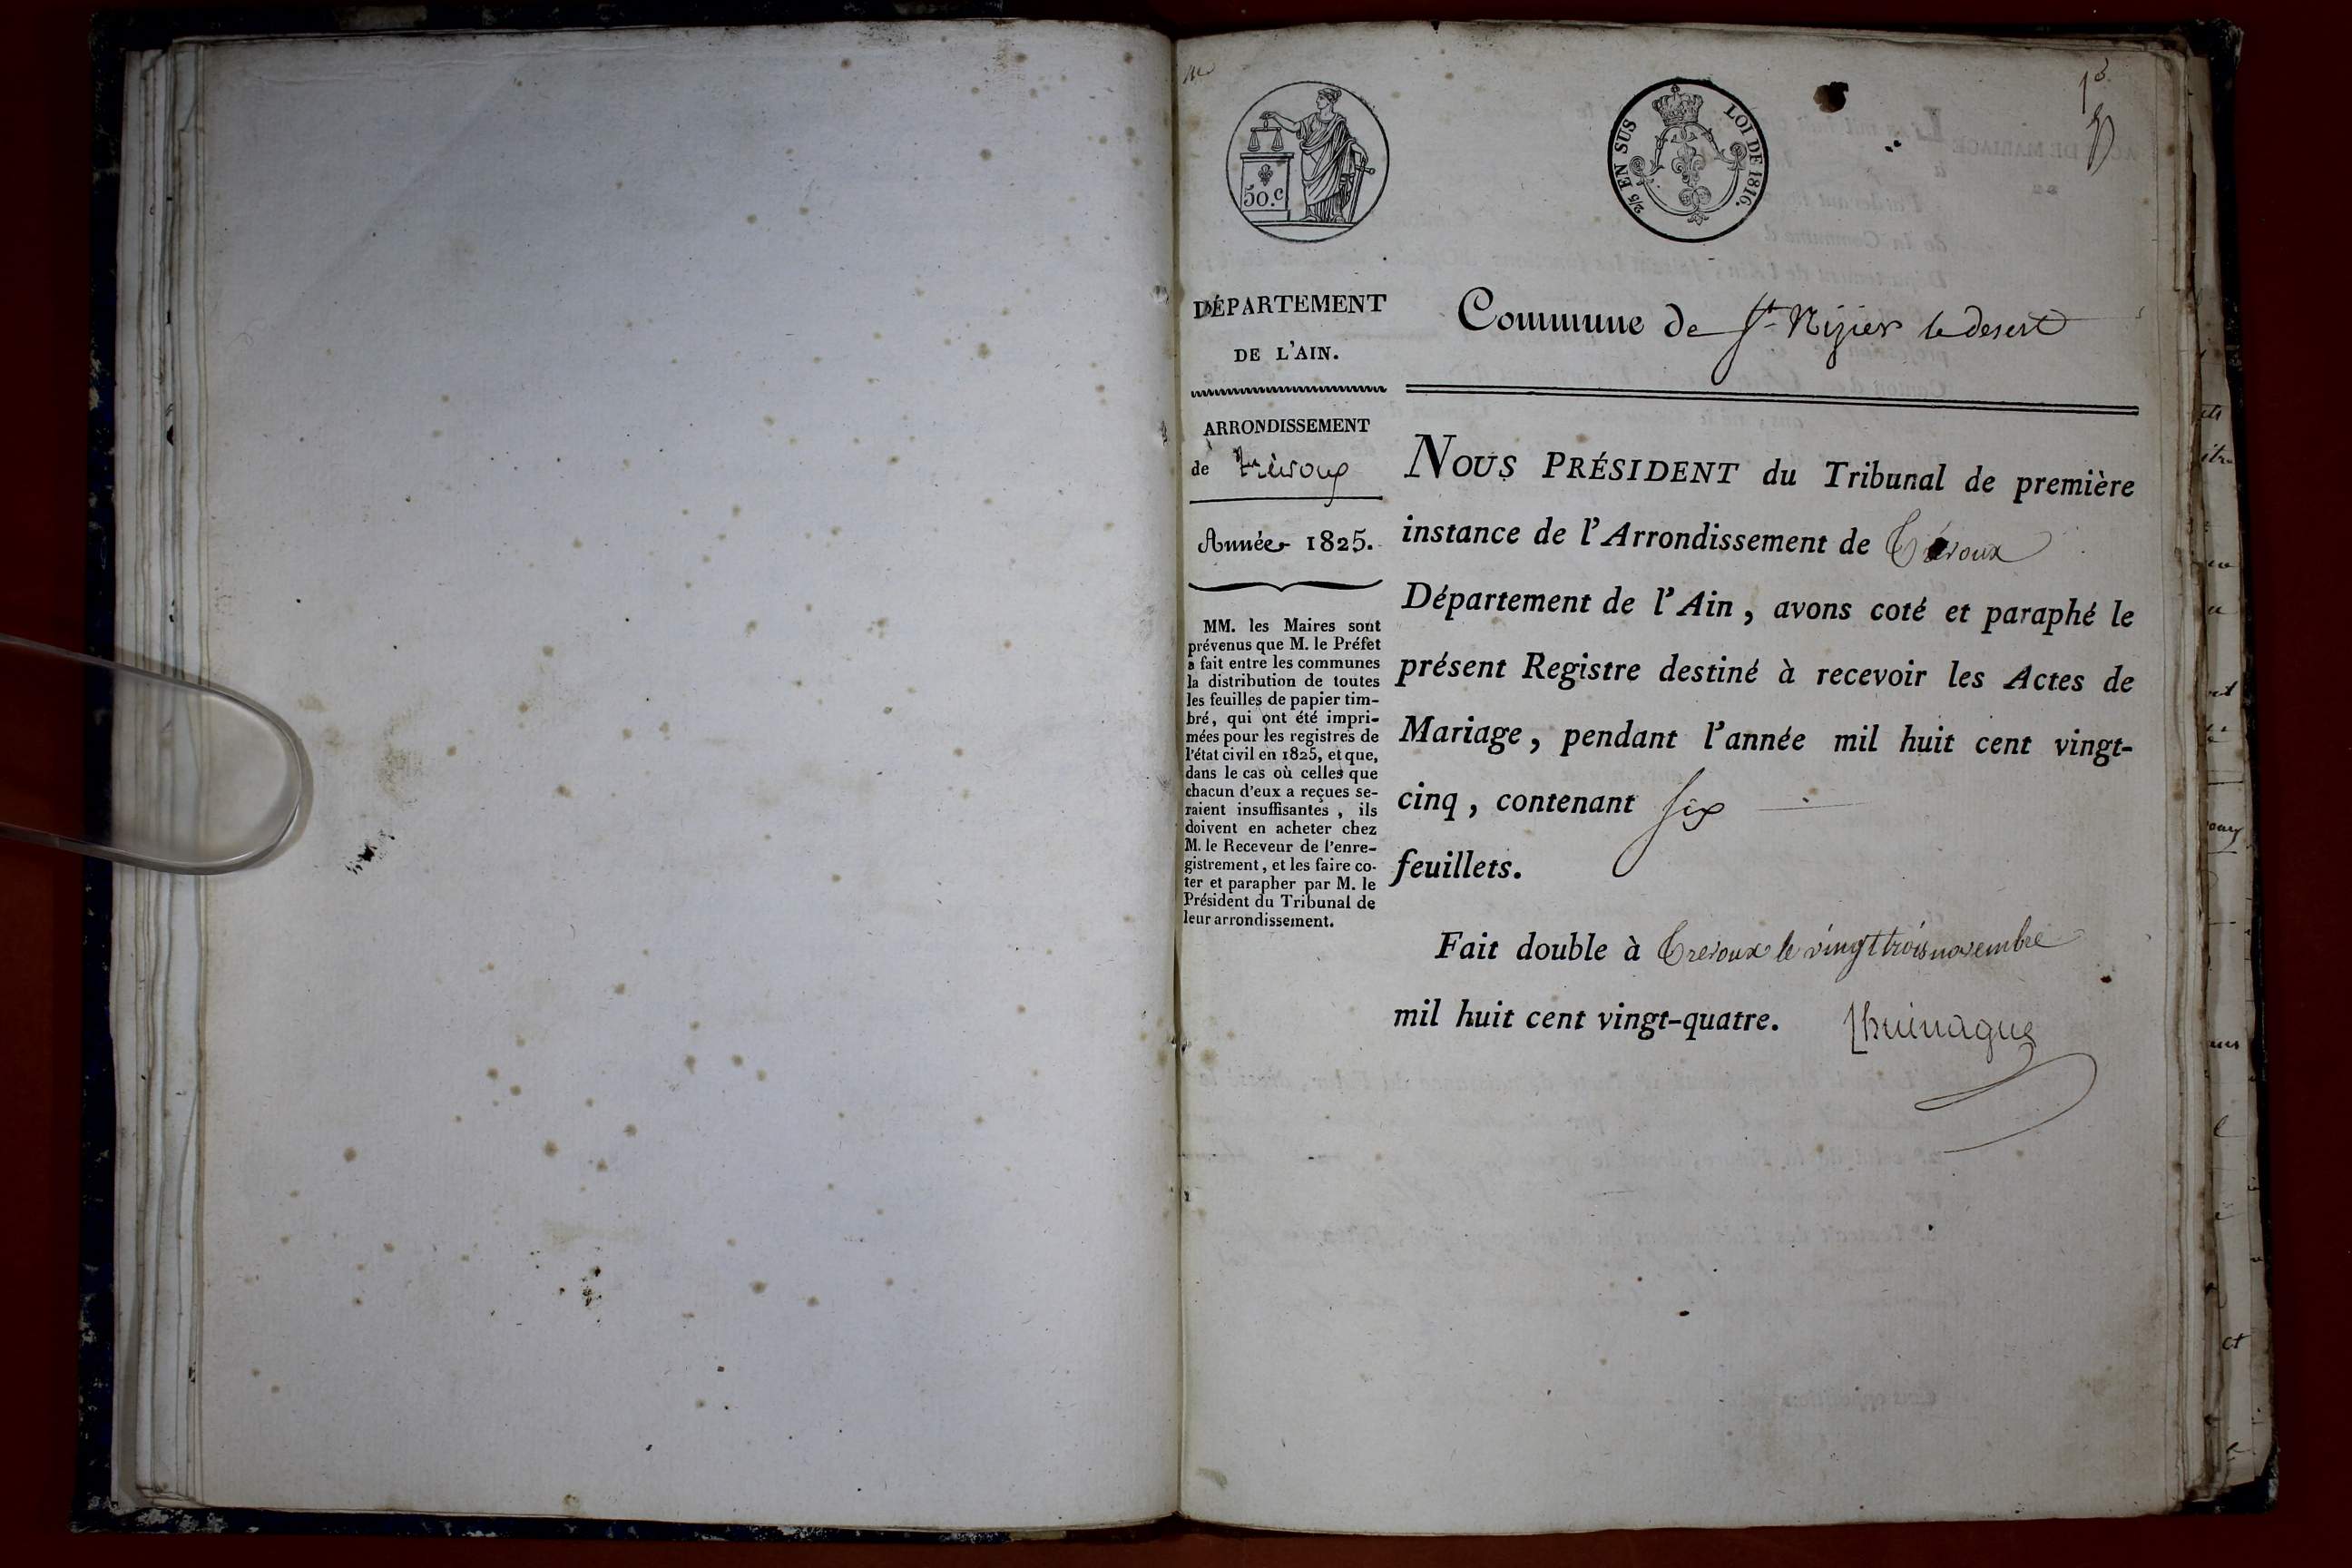 50.c
2/5 EN SUS
LOI DE 1816.
DÉPARTEMENT
DE L'AIN.
ARRONDISSEMENT
de Trévoux
Année 1825.
MM. les Maires sont
prévenus que M. le Préfet
a fait entre les communes
la distribution de toutes
les feuilles de papier tim-
bré, qui ont été impri-
mées pour les registres de
l'état civil en 1825, et que,
dans le cas où celles que
chacun d'eux a reçues se-
raient insuffisantes, ils
doivent en acheter chez
M. le Receveur de l'enre-
gistrement, et les faire co-
ter et parapher par M. le
Président du Tribunal de
leur arrondissement.
Commune de St Nizier le desert
NOUS PRÉSIDENT du Tribunal de première
instance de l'Arrondissement de Trévoux
Département de l'Ain, avons coté et paraphé le
présent Registre destiné à recevoir les Actes de
Mariage, pendant l'année mil huit cent vingt-
cinq, contenant six
feuillets.
Fait double à Trevoux le vingt trois novembre
mil huit cent vingt-quatre.